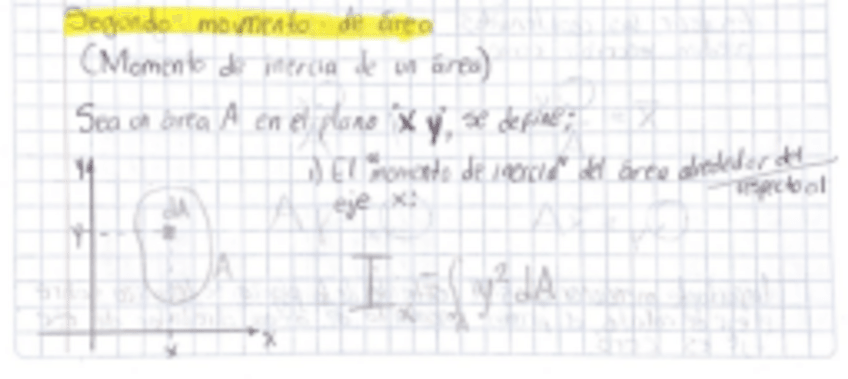 Segundo momento de área
(Momento de inercia de un área)
Sea un área A en el plano "x y", se define:
i) El "momento de inercia" del área alrededor del
respecto al
eje x:
y
dA
y
A
I_x = ∫_A y² dA
x
x